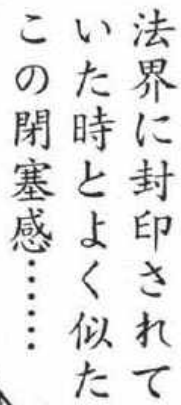 法界に封印されて
いた時とよく似た
この閉塞感……